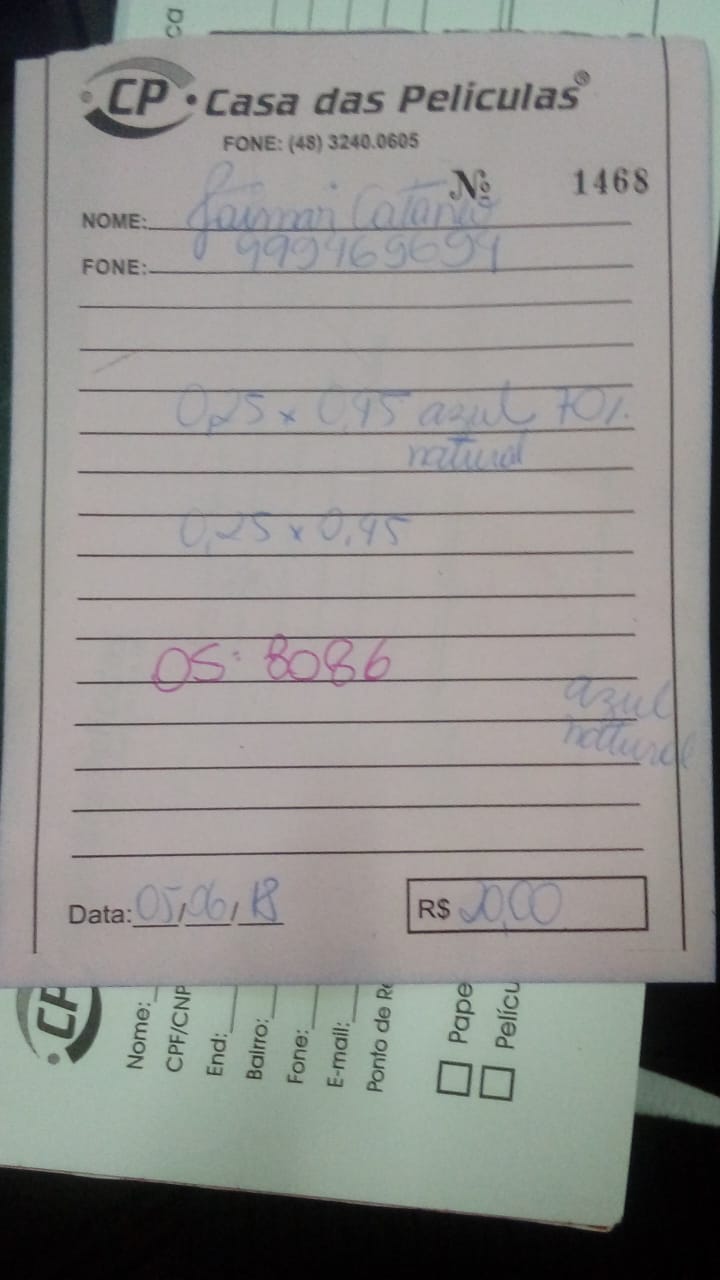 CP • Casa das Películas®
FONE: (48) 3240.0605
Nº 1468
NOME:
FONE: 999469694
0,25 x 0,45 azul 70%
natural
0,25 x 0,45
OS: 8086
azul
natural
Data: 05/06/18
R$ 20,00
CP
Nome:
CPF/CNP
End:
Bairro:
Fone:
E-mail:
Ponto de Re
Pape
Pelícu
ca